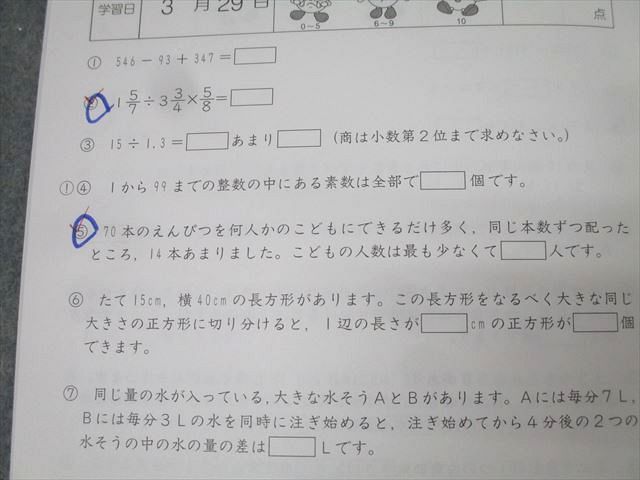 学習日 3 月 29 日
0~5 6~9 10 点
① 546-93+347=□
② 1 5/7÷3 3/4×5/8=□
③ 15÷1.3=□あまり□ (商は小数第2位まで求めなさい。)
①④ 1から99までの整数の中にある素数は全部で□個です。
⑤ 70本のえんぴつを何人かのこどもにできるだけ多く,同じ本数ずつ配った
ところ,14本あまりました。こどもの人数は最も少なくて□人です。
⑥ たて15cm,横40cmの長方形があります。この長方形をなるべく大きな同じ
大きさの正方形に切り分けると,1辺の長さが□cmの正方形が□個
できます。
⑦ 同じ量の水が入っている,大きな水そうAとBがあります。Aには毎分7L,
Bには毎分3Lの水を同時に注ぎ始めると,注ぎ始めてから4分後の2つの
水そうの中の水の量の差は□Lです。